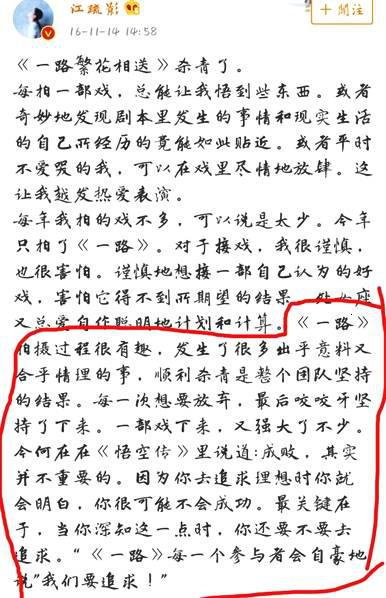 江疏影
16-11-14 14:58
+關注
《一路繁花相送》杀青了。
每拍一部戏，总能让我悟到些东西。或者
奇妙地发现剧本里发生的事情和现实生活
的自己所经历的竟能如此贴近。或者平时
不爱哭的我，可以在戏里尽情地放肆。这
让我越发热爱表演。
每年我拍的戏不多，可以说是太少。今年
只拍了《一路》。对于接戏，我很谨慎，
也很害怕。谨慎地想接一部自己认为的好
戏，害怕它得不到所期望的结果。处女座
又总爱自作聪明地计划和计算。《一路》
拍摄过程很有趣，发生了很多出乎意料又
合乎情理的事，顺利杀青是整个团队坚持
的结果。每一次想要放弃，最后咬咬牙坚
持了下来。一部戏下来，又强大了不少。
今何在在《悟空传》里说道:成败，其实
并不重要的。因为你去追求理想时你就
会明白，你很可能不会成功。最关键在
于，当你深知这一点时，你还要不要去
追求。“《一路》每一个参与者会自豪地
说"我们要追求！"